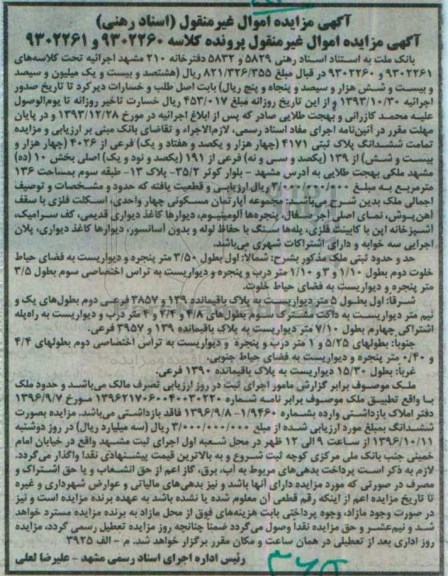 آگهی مزایده اموال غیرمنقول (اسناد رهنی)
آگهی مزایده اموال غیرمنقول پرونده کلاسه ۹۳۰۲۲۶۰ و ۹۳۰۲۲۶۱
بانک ملت به استناد اسناد رهنی ۵۸۲۹ و ۵۸۳۲ دفترخانه ۲۱۰ مشهد اجرائیه تحت کلاسه‌های
۹۳۰۲۲۶۱ و ۹۳۰۲۲۶۰ در قبال مبلغ ۸۲۱/۳۲۶/۳۵۵ ریال (هشتصد و بیست و یک میلیون و سیصد
و بیست و شش هزار و سیصد و پنجاه و پنج ریال) بابت اصل طلب و خسارات دیرکرد تا تاریخ صدور
اجرائیه ۱۳۹۳/۱۰/۳۰ و از این تاریخ روزانه مبلغ ۴۵۳/۰۱۷ ریال خسارت تاخیر روزانه تا یوم‌الوصول
علیه محمد کازرانی و بهجت طلایی صادر که پس از ابلاغ اجرائیه در مورخ ۱۳۹۳/۱۲/۲۸ و در پایان
مهلت مقرر در آئین‌نامه اجرای مفاد اسناد رسمی، لازم‌الاجراء و تقاضای بانک مبنی بر ارزیابی و مزایده
تمامت ششدانگ پلاک ثبتی ۴۱۷۱ (چهار هزار و یکصد و هفتاد و یک) فرعی از ۴۰۲۶ (چهار هزار و
بیست و شش) از ۱۳۹ (یکصد و سی و نه) فرعی از ۱۹۱ (یکصد و نود و یک) اصلی بخش ۱۰ (ده)
مشهد ملکی بهجت طلایی به آدرس مشهد - بلوار کوثر ۳۵/۲- پلاک ۱۳- طبقه سوم بمساحت ۱۳۶
مترمربع به مبلغ ۳/۰۰۰/۰۰۰/۰۰۰ ریال ارزیابی و قطعیت یافته که حدود و مشخصات و توصیف
اجمالی ملک بدین شرح می‌باشد: مجموعه آپارتمان مسکونی چهار واحدی، اسکلت فلزی با سقف
آهن‌پوش، نمای اصلی آجر سفال، پنجره‌ها آلومینیوم، دیوارها کاغذ دیواری قدیمی، کف سرامیک،
آشپزخانه اپن با کابینت فلزی، پله‌ها سنگ با حفاظ لوله و بدون آسانسور، دیوارها کاغذ دیواری، پلان
اجرایی سه خوابه و دارای اشتراکات شهری می‌باشد.
حد و حدود ثبتی ملک مذکور بشرح: شمالا: اول بطول ۳/۵۰ متر پنجره و دیواریست به فضای حیاط
خلوت دوم بطول ۱/۱۰ و ۳ و ۱/۱۰ متر درب و پنجره و دیواریست به تراس اختصاصی سوم بطول ۳/۵
متر پنجره و دیواریست به فضای حیاط خلوت.
شرقا: اول بطول ۵ متر دیواریست به پلاک باقیمانده ۱۳۹ و ۳۸۵۷ فرعی دوم بطول‌های یک و
نیم متر دیواریست به داکت مشترک سوم بطول‌های ۴/۸ و ۲/۴ و ۴ متر درب و دیواریست به راه‌پله
اشتراکی چهارم بطول ۷/۱۰ متر دیواریست به پلاک باقیمانده ۱۳۹ و ۳۹۵۷ فرعی.
جنوبا: بطولهای ۵/۲۵ و ۱ متر درب و پنجره و دیواریست به تراس اختصاصی دوم بطولهای ۴/۴
و ۰/۴۰ متر پنجره و دیواریست به فضای حیاط جنوبی.
غربا: بطول ۱۵/۳۰ دیواریست به پلاک باقیمانده ۱۳۹۰ فرعی.
ملک موصوف برابر گزارش مامور اجرای ثبت در روز ارزیابی تصرف مالک می‌باشد و حدود ملک
با واقع تطبیق ملک موصوف برابر نامه شماره ۱۳۹۶۲۱۷۰۶۰۰۴۰۰۳۰۲۲۰ مورخ ۱۳۹۶/۹/۷
دفتر املاک بازداشتی وارده بشماره ۱/۹۴۶۰-۱۳۹۶/۹/۸ فاقد بازداشتی می‌باشد. مزایده بصورت
ششدانگ بمبلغ مورد ارزیابی شده از مبلغ ۳/۰۰۰/۰۰۰/۰۰۰ ریال (سه میلیارد ریال) در روز دوشنبه
۱۳۹۶/۱۰/۱۱ از ساعت ۹ الی ۱۲ ظهر در محل شعبه اول اجرای ثبت مشهد واقع در خیابان امام
خمینی جنب بانک ملی مرکزی کوچه ثبت شروع و به بالاترین قیمت پیشنهادی نقدا واگذار می‌گردد.
لازم به ذکر است پرداخت بدهی‌های مربوط به آب، برق، گاز اعم از حق انشعاب و یا حق اشتراک و
مصرف در صورتی که مورد مزایده دارای آنها باشد و نیز بدهی‌های مالیاتی و عوارض شهرداری و غیره
تا تاریخ مزایده اعم از اینکه رقم قطعی آن معلوم شده یا نشده باشد به عهده برنده مزایده است و نیز
در صورت وجود مازاد، وجوه پرداختی بابت هزینه‌های فوق از محل مازاد به برنده مزایده مسترد خواهد
شد و نیم‌عشر و حق مزایده نقدا وصول می‌گردد ضمنا چنانچه روز مزایده تعطیل رسمی گردد، مزایده
روز اداری بعد از تعطیلی در همان ساعت و مکان مقرر برگزار خواهد شد. م - الف ۳۹۲۵
رئیس اداره اجرای اسناد رسمی مشهد - علیرضا لعلی